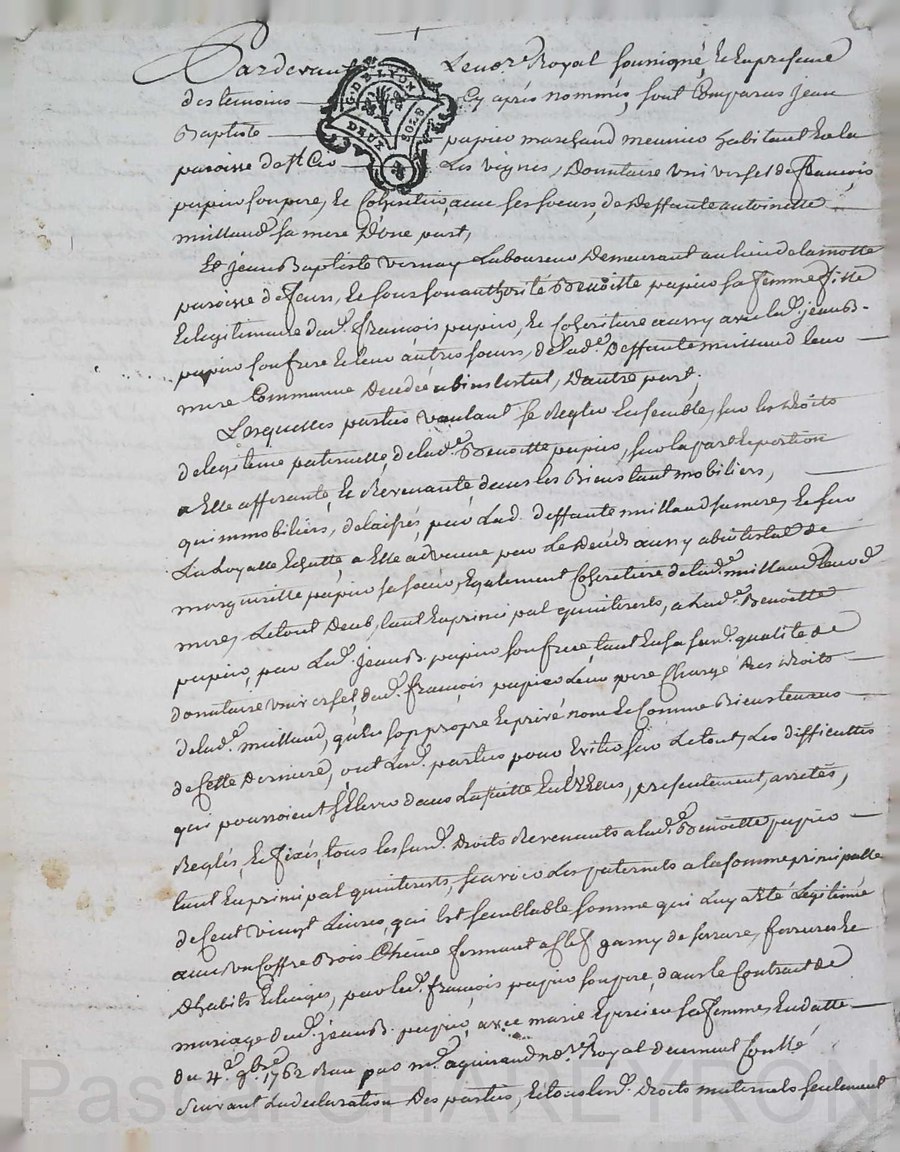 Pardevant Le no.re Royal soussigné, Et En presence
G. DE LYON
DEUX
SOLS
des temoins Cy après nommés, sont Comparus Jean
Baptiste papier marchand meunier habitant En la
paroisse de St Cir Les vignes, Donataire universel de François
papier son pere, Et Coheritier, avec ses soeurs, de Deffunte antoinette
millaud sa mere D'une part,
Et jean Baptiste vernay Laboureur Demeurant au lieu de la motte
paroisse de feurs, Et sous son authorité Benoitte papier sa femme fille
Et legitimaire dud. françois papier, Et Coheritiere aussy avec led. jean B.
papier son frere Et leur autres soeurs, de lad.e Deffunte millaud leur
mere Commune Decedée ab intestat, D'autre part,
Lesquelles parties voulant se Regler Ensemble, sur les Droits
de legitime paternelle, de lad.e Benoitte papier, sur la part Et portion
a Elle afferante, Et Revenante dans les Biens tant mobiliers,
qu'immobiliers, delaissés, par Lad. deffunte millaud sa mere, Et sur
La Loyalle Echutte, a Elle advenue par Le Deceds aussy ab intestat de
marguerite papier sa soeur, Egalement Coheritiere de lad.e millaud leur d.
mere, Le tout Deub, tant En principal qu'interests, a lad.e Benoitte
papier, par Led. jean B. papier son frere tant En sa sus d. qualité de
donataire universel dud. françois papier Leur pere Chargé Des Droits
de lad.e millaud, qu'En son propre Et privé nom Et Comme Biens tenant
de Cette Derniere, ont Lesd. parties pour Eviter sur Le tout, Les difficultés
qui pourroient s'Elever dans La suitte Entr'Elles, presentement, arretés,
Reglés, Et fixés, tous les susd. Droits Revenants a lad.e Benoitte papier
tant En principal qu'interests, scavoir Les paternels a la somme principalle
de Cent vingt Livres, qui Est semblable somme qui Luy a Eté Legitimée
avec un Coffre Bois Chêne fermant a Clef garny de serrure, ferrures Et
D'habits Et linges, par led. françois papier son pere, dans le Contrat de
mariage dud. jean B. papier, avec marie Epicier sa femme, En datte
du 4.e 9bre 1762 Reçu par m.e aguiraud no.re Royal deument Conttlé
Suivant La declaration Des parties, Et tous les d. Droits maternels seulement
Pascal CHAREYRON